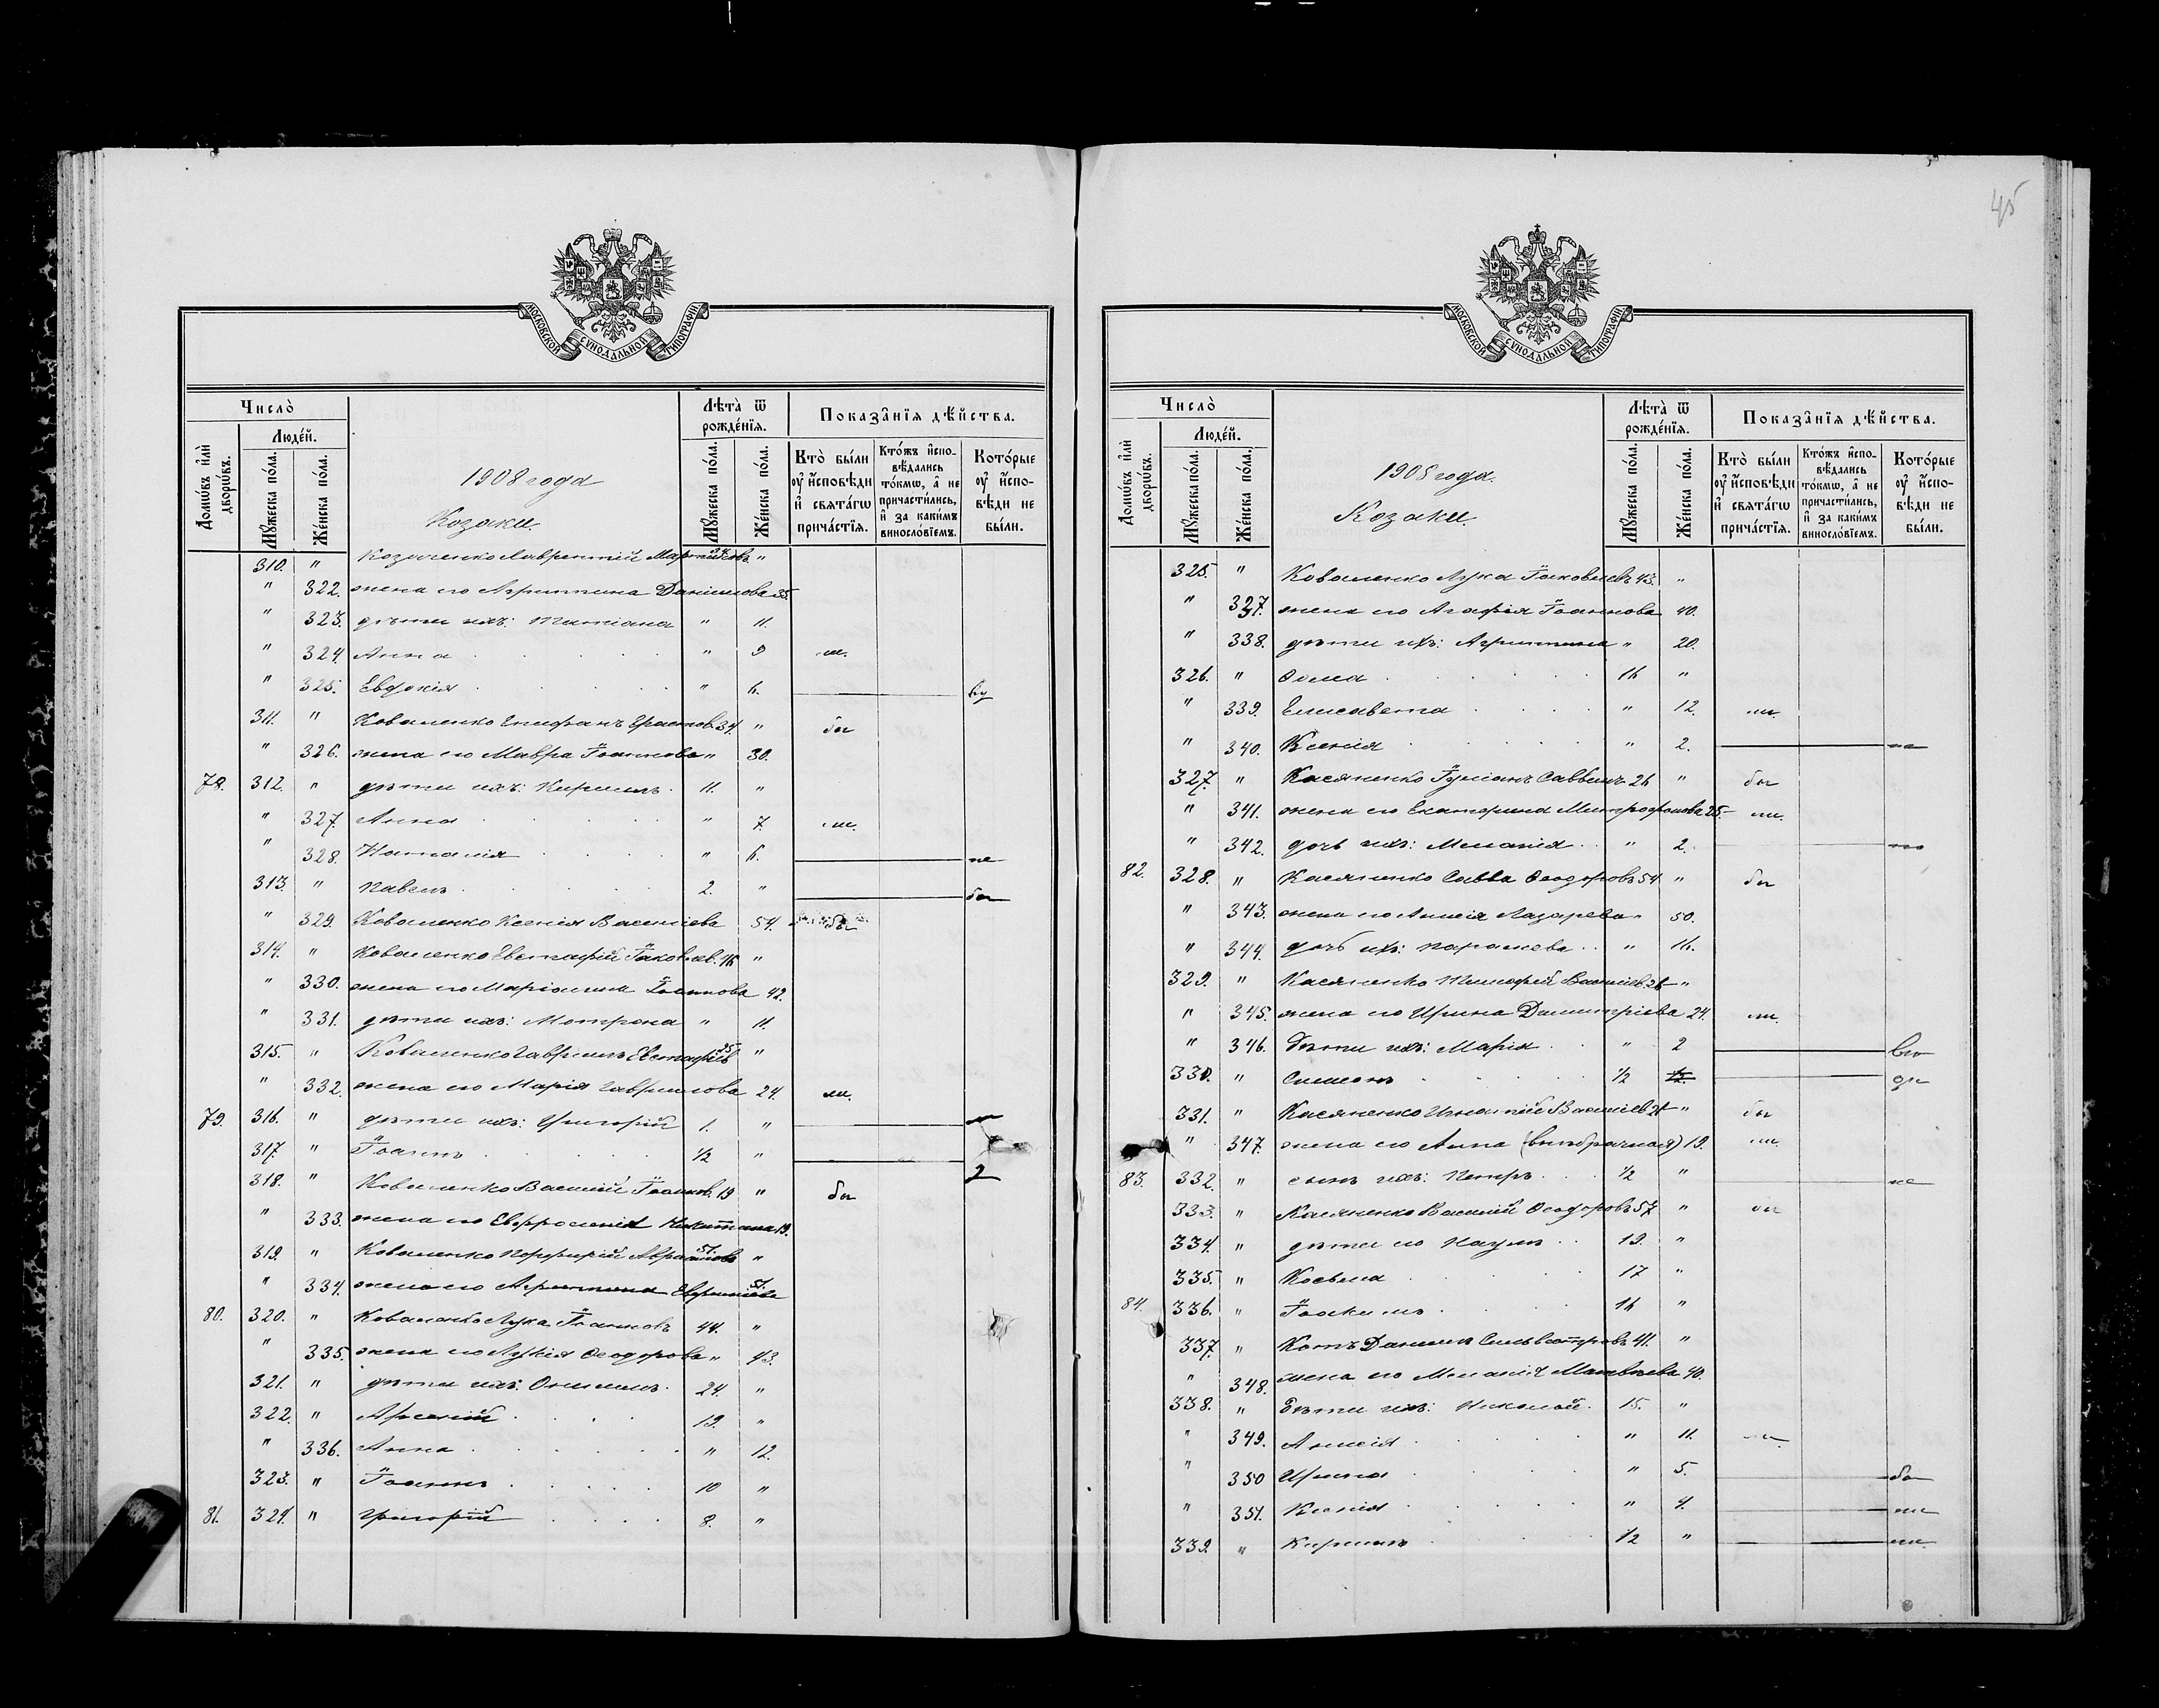 45
МОСКОВСКОЙ СѴНОДАЛЬНОЙ ТИПОГРАФІИ
Число̀
Людéй.
Домѡ́въ и҆лѝ дворѡ́въ.
Мꙋ́жеска по́ла.
Же́нска по́ла.
1908 года
Козаки.
Лѣ́та ѿ рожде́нїѧ.
Мꙋ́жеска по́ла.
Же́нска по́ла.
Показа̑нїѧ дѣ́йства.
Кто̀ бы́ли ᲂу҆ и҆́сповѣди и҆ свѧта́гѡ прича́стїѧ.
Кто́жъ и҆спо-вѣ́дались то́кмѡ, а҆ не причасти́лись, и҆ за каки́мъ винослові́емъ.
Кото́рые ᲂу҆ и҆́спо-вѣди не бы́ли.
310. " Козаченко Лаврентій "
" 322. жена его Агриппина Даниилова 35.
" 323. дѣти ихъ: Татіана " 11.
" 324. Анна " 9
" 325. Евдокія " 6.
311. " Коваленко Епифанъ 34. " бы
" 326. жена его Мавра Іоаннова " 30.
78. 312. " дѣти ихъ: Кириллъ 11. "
" 327. Анна " 7. ли.
" 328. Наталія " 6. не
313. " Павелъ 2. " бы
" 329. Коваленко Ксенія Василіева 54. бы
314. " Коваленко Евстафій Іаковлев. "
" 330. жена его Маріамна Іоаннова 42.
" 331. дѣти ихъ: Матрона " 11.
315. " Коваленко Гавріилъ Евстафіев 25. "
" 332. жена его Марія Гавріилова 24. ли.
79. 316. " дѣти ихъ: Григорій 1. "
317. " Іоаннъ 1/2 "
318. " Коваленко Василій Іоаннов. 19 " бы
" 333. жена его Евфросинія Никитина 19.
319. " Коваленко Порфирій Аврамовъ 51. "
" 334. жена его Агриппина 51.
80. 320. " Коваленко Лука Іоанновъ 44. "
" 335. жена его Лукія Ѳеодорова " 43.
321. " дѣти ихъ: Онисимъ 24. "
322. " Арсеній 19. "
" 336. Анна " 12.
323. " Іоаннъ 10 "
81. 324. " Григорій 8. "
Число̀
Людéй.
Домѡ́въ и҆лѝ дворѡ́въ.
Мꙋ́жеска по́ла.
Же́нска по́ла.
1908 года.
Козаки.
Лѣ́та ѿ рожде́нїѧ.
Мꙋ́жеска по́ла.
Же́нска по́ла.
Показа̑нїѧ дѣ́йства.
Кто̀ бы́ли ᲂу҆ и҆́сповѣди и҆ свѧта́гѡ прича́стїѧ.
Кто́жъ и҆спо-вѣ́дались то́кмѡ, а҆ не причасти́лись, и҆ за каки́мъ винослові́емъ.
Кото́рые ᲂу҆ и҆́спо-вѣди не бы́ли.
325. " Коваленко Лука Іаковлевъ 43. "
" 337. жена его Агафія Іоаннова 40.
" 338. дѣти ихъ: Агриппина " 20.
326. " Ѳома 16 "
" 339. Елисавета " 12. ли.
" 340. Ксенія " 2. на
327. " Касяненко Іуліанъ Саввинъ 26 " бы
" 341. жена его Екатерина Митрофанова 25. ли.
" 342. дочь ихъ: Меланія " 2.
82. 328. " Касяненко Савва Ѳеодоровъ 54 " бы
" 343. жена его Анисія Лазарева " 50.
" 344. дочь ихъ: Параскева " 16.
329. " Касяненко Тимофей Василіев. 26 "
" 345. жена его Ирина Димитріева 24. ли.
" 346. дѣти ихъ: Марія " 2
330. " Симеонъ 1/2 1/2
331. " Касяненко Игнатій Василіев. 21 " бы
" 347. жена его Анна (внѣбрачная) 19. ли.
83. 332. " сынъ ихъ: Петръ 1/2 " не
333. " Касяненко Василій Ѳеодоровъ 57 " бы
334. " дѣти его Наумъ 19. "
335. " Косьма 17 "
84. 336. " Іоакимъ 16 "
337. " Котъ Даніилъ Сильвестровъ 41. "
" 348. жена его Меланія Матвѣева 40.
338. " Дѣти ихъ: Николай 15. "
" 349. Анисія " 11. ли.
" 350 Ирина " 5. бы
" 351. Ксенія " 4. ли
339. " Кириллъ 1/2 " ли.